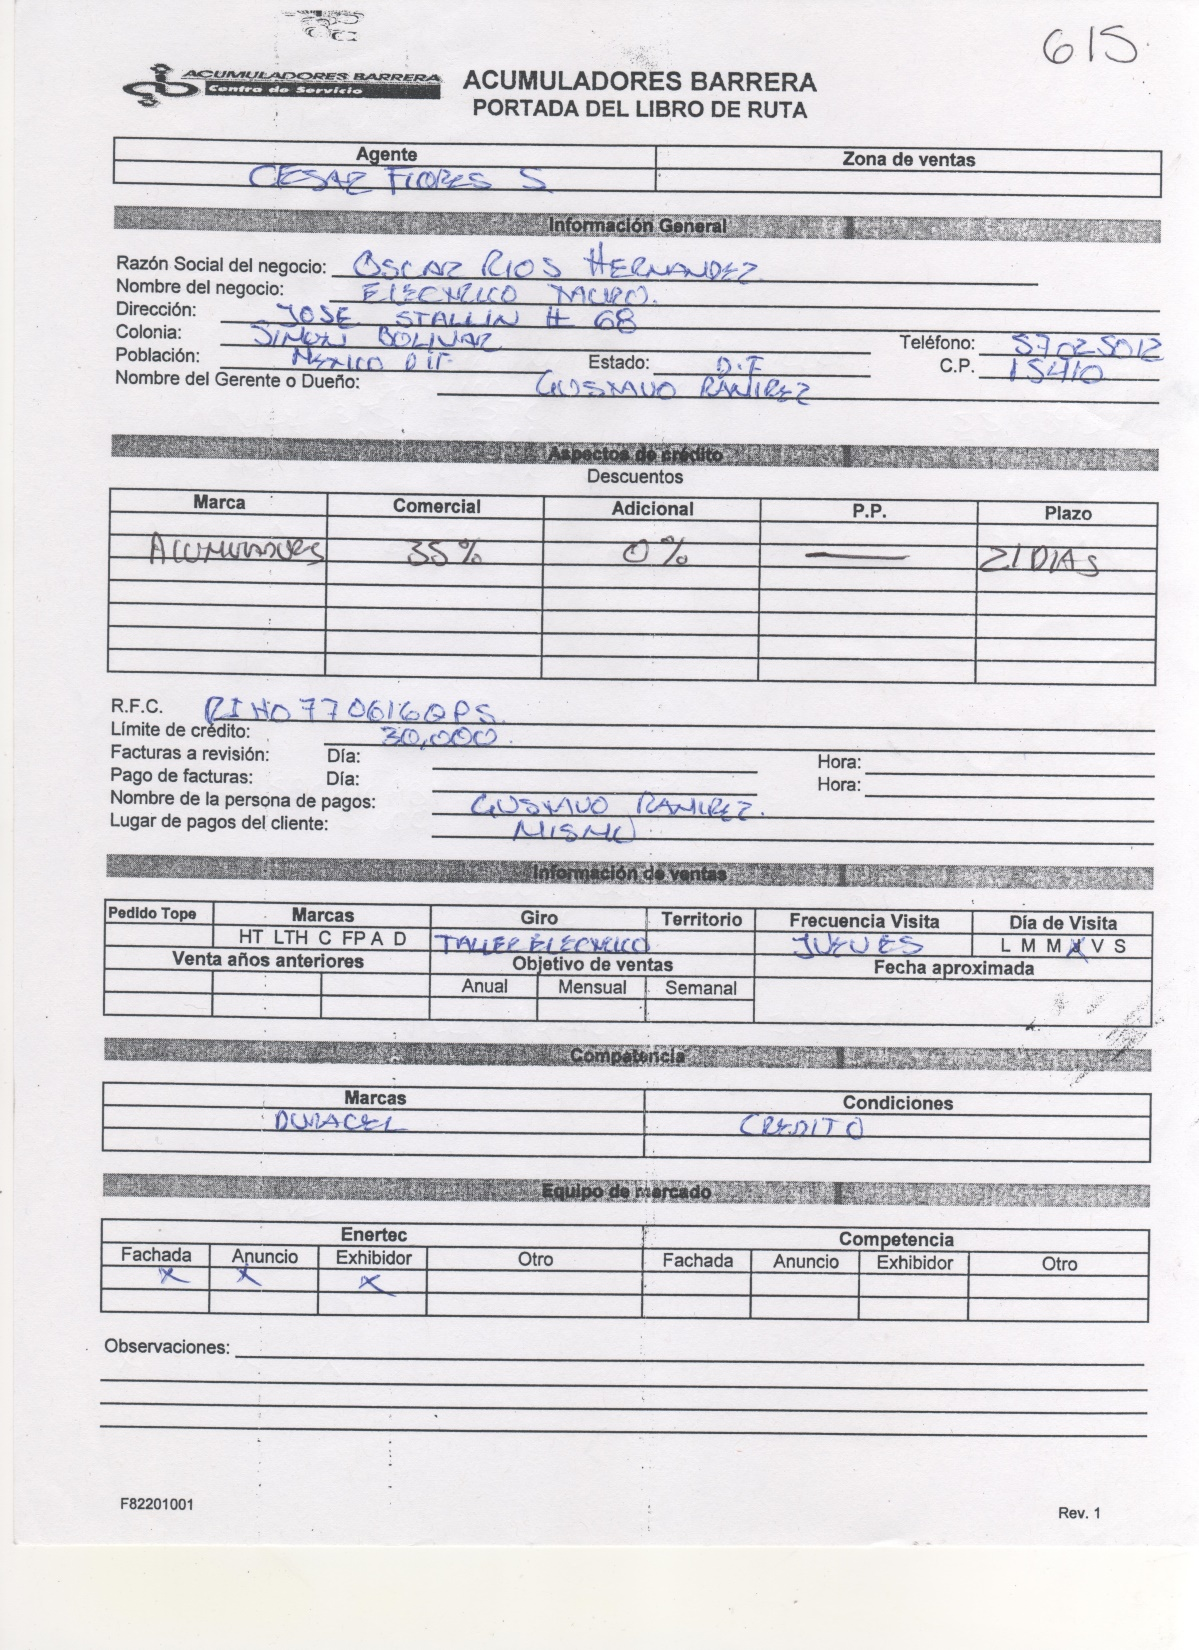 615
ACUMULADORES BARRERA
Centro de Servicio
ACUMULADORES BARRERA
PORTADA DEL LIBRO DE RUTA
Agente Zona de ventas
CESAR FLORES S
Información General
Razón Social del negocio: OSCAR RIOS HERNANDEZ
Nombre del negocio: ELECTRICO TAURO.
Dirección: JOSE STALLIN # 68
Colonia: SIMON BOLIVAR Teléfono: 57025012
Población: MEXICO D.F. Estado: D.F C.P. 15410
Nombre del Gerente o Dueño: GUSTAVO RAMIREZ
Aspectos de crédito
Descuentos
Marca Comercial Adicional P.P. Plazo
ACUMULADORES 35% 0% — 21 DIAS
R.F.C. RIHO770616QPS
Límite de crédito: 30,000
Facturas a revisión: Día: Hora:
Pago de facturas: Día: Hora:
Nombre de la persona de pagos: GUSTAVO RAMIREZ.
Lugar de pagos del cliente: MISMO
Información de ventas
Pedido Tope Marcas Giro Territorio Frecuencia Visita Día de Visita
HT LTH C FP A D TALLER ELECTRICO JUEVES L M M J V S
Venta años anteriores Objetivo de ventas Fecha aproximada
Anual Mensual Semanal
Competencia
Marcas Condiciones
DURACEL CREDITO
Equipo de mercado
Enertec Competencia
Fachada Anuncio Exhibidor Otro Fachada Anuncio Exhibidor Otro
X X X
Observaciones:
F82201001 Rev. 1